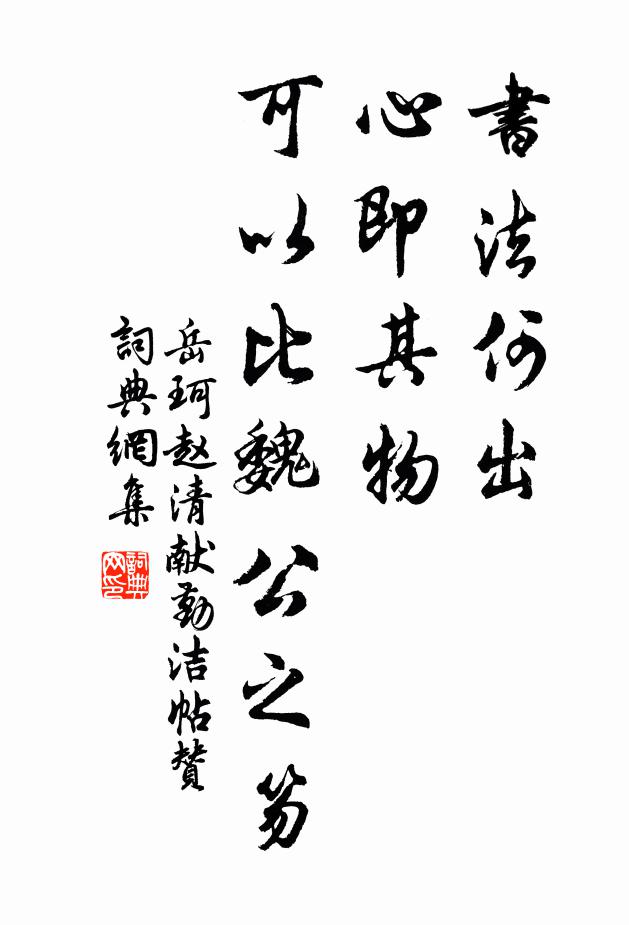 書法何出
心即其物
可以比魏公之笏
岳珂赵清献勤洁帖贊
詞典網集
詞典网印